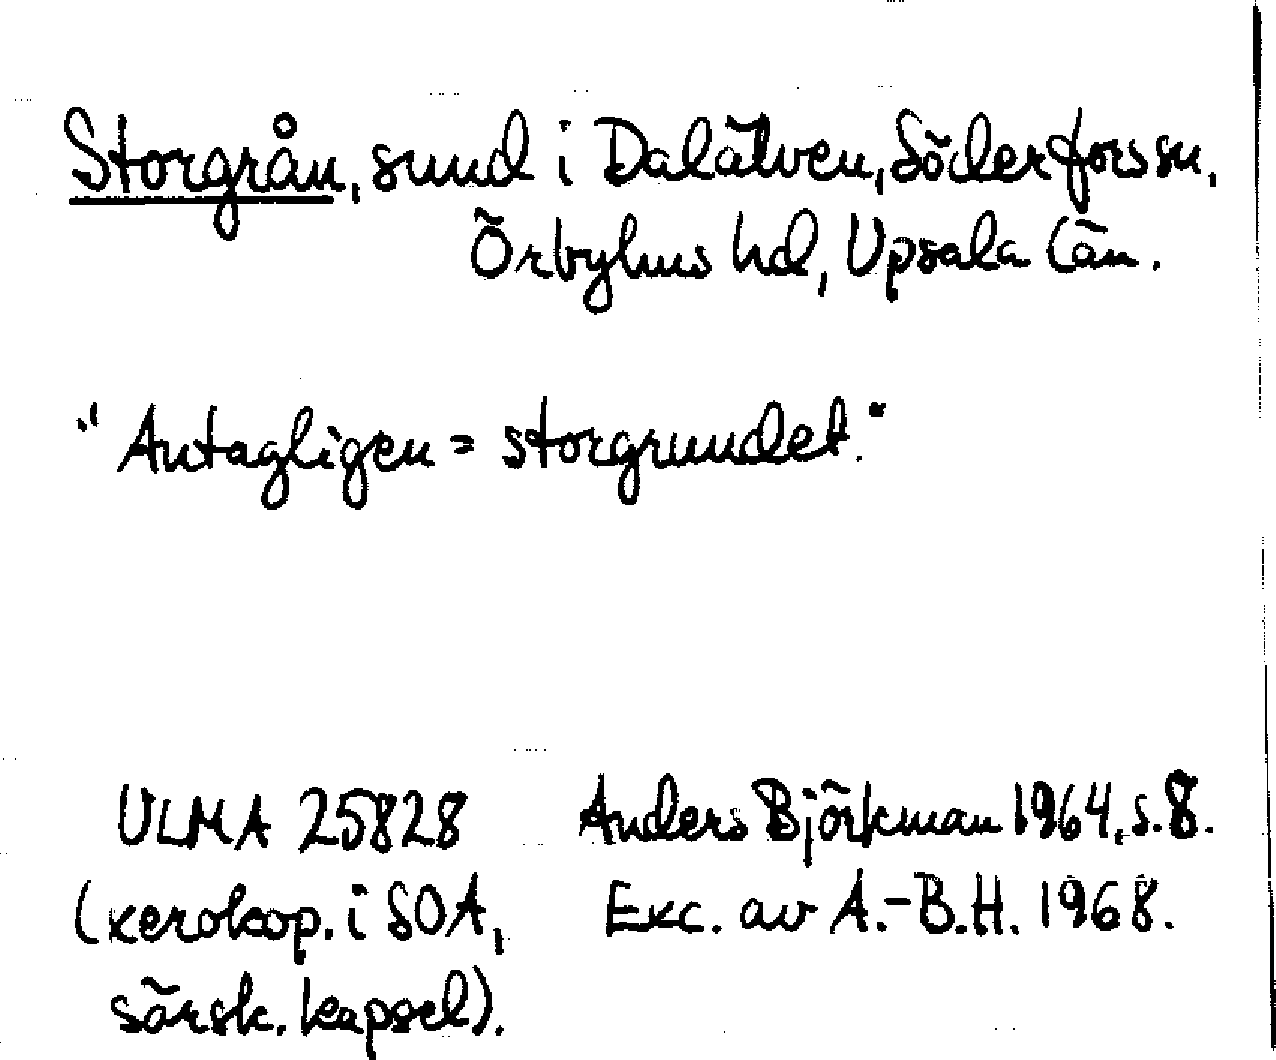 Storgrån, sund i Dalälven, Söderfors sn,
Örbyhus hd, Upsala län.
"Antagligen = storgrundet."
ULMA 25828 Anders Björkman 1964, s. 8.
(xerokop. i SOA, Exc. av A.-B.H. 1968.
särsk. kapsel).